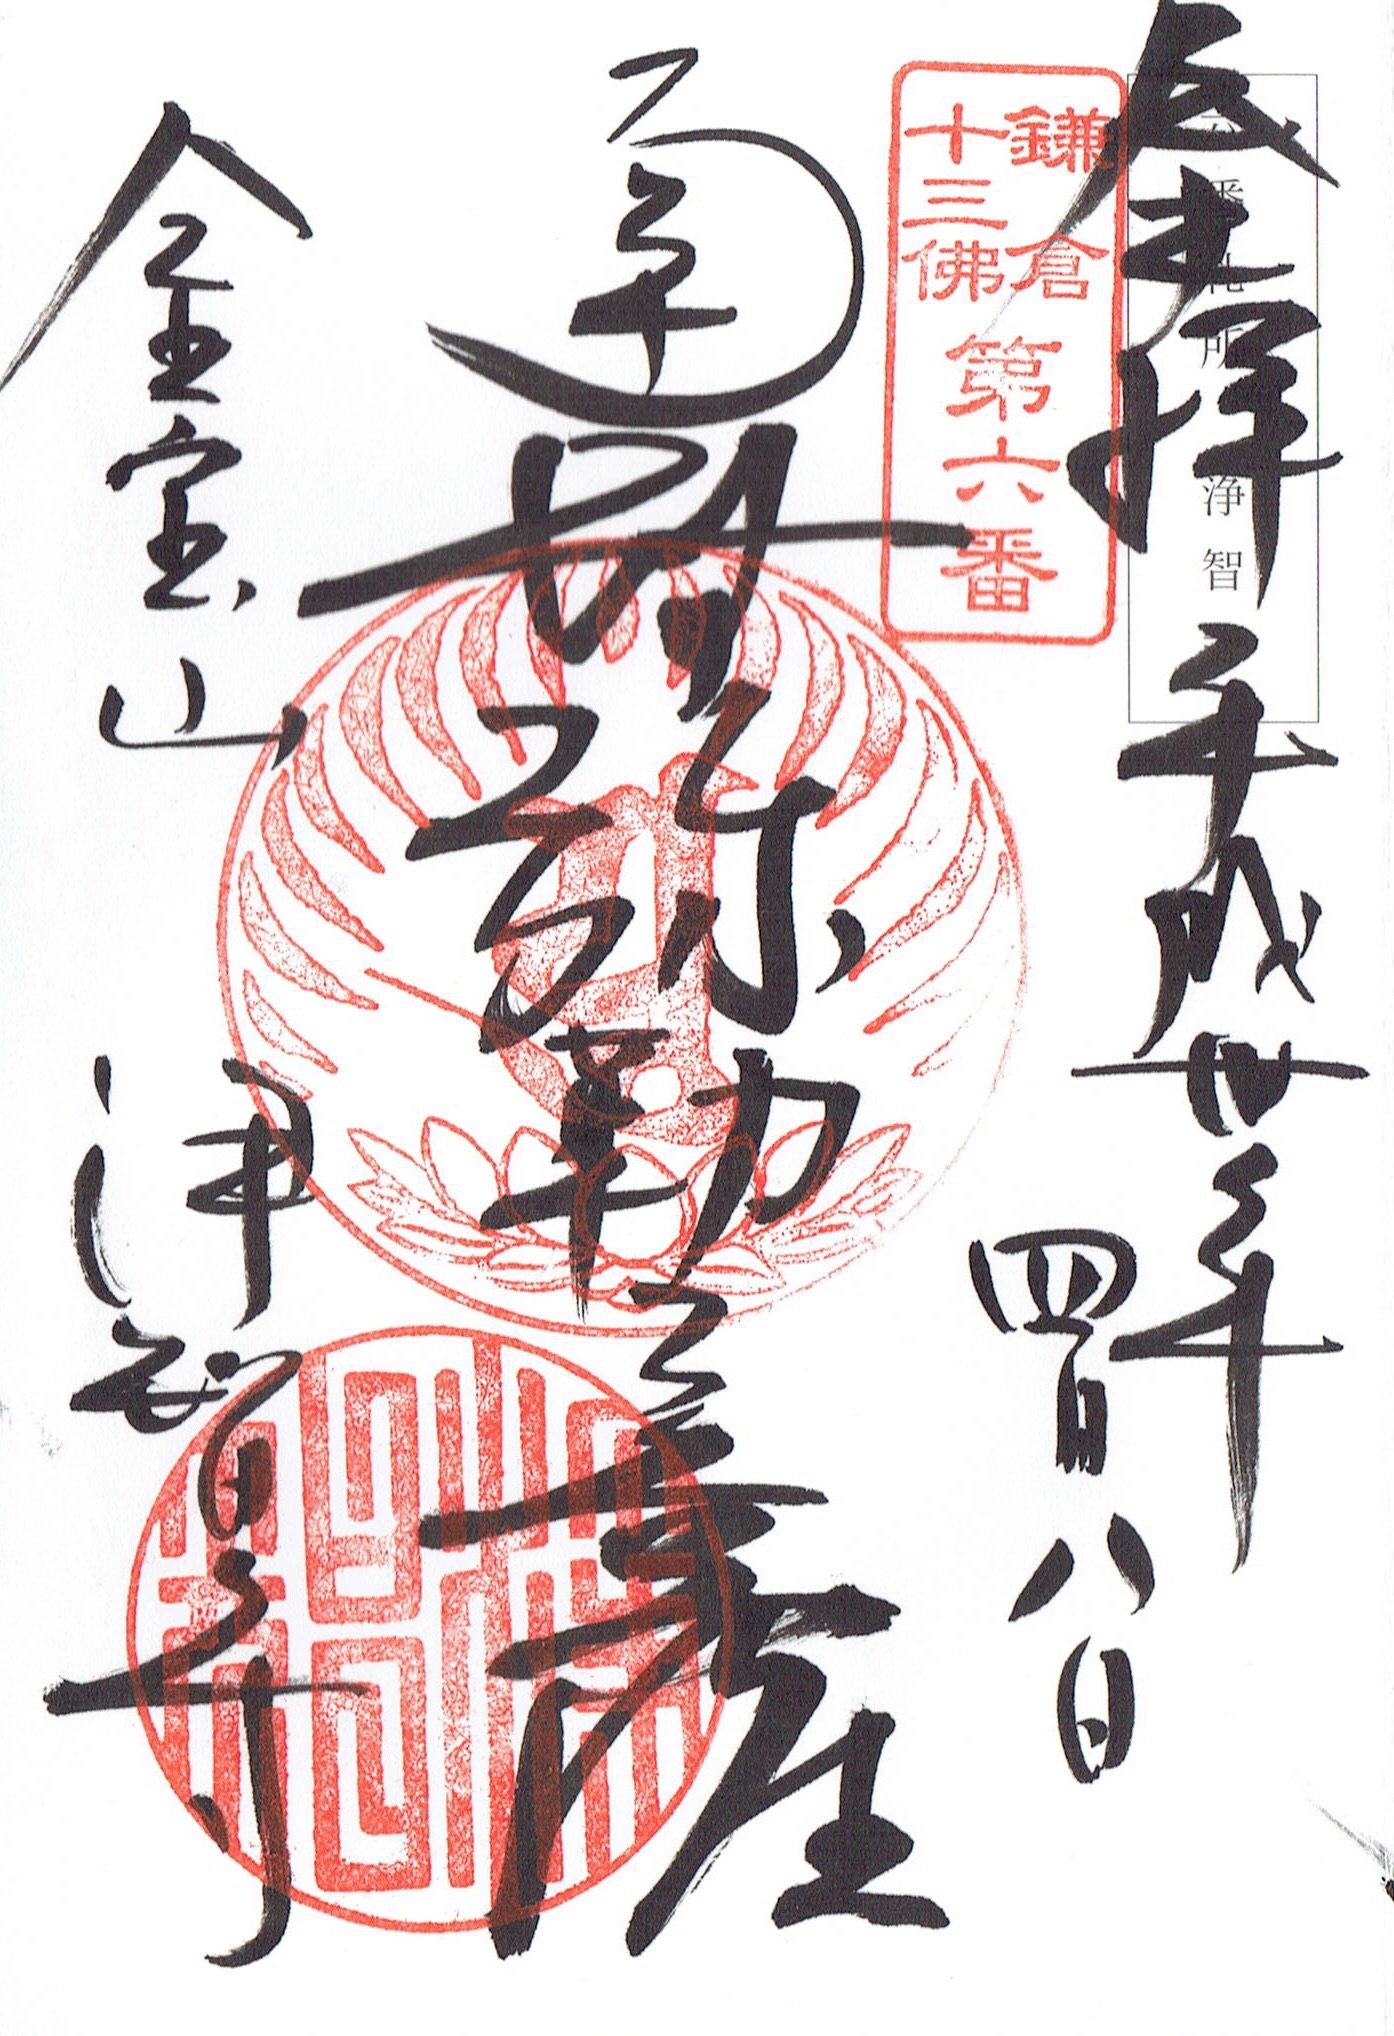 奉拝 平成卅年
四月八日
六番札所 浄智
鎌倉
十三佛
第六番
南無弥勒菩薩
金宝山 浄智寺